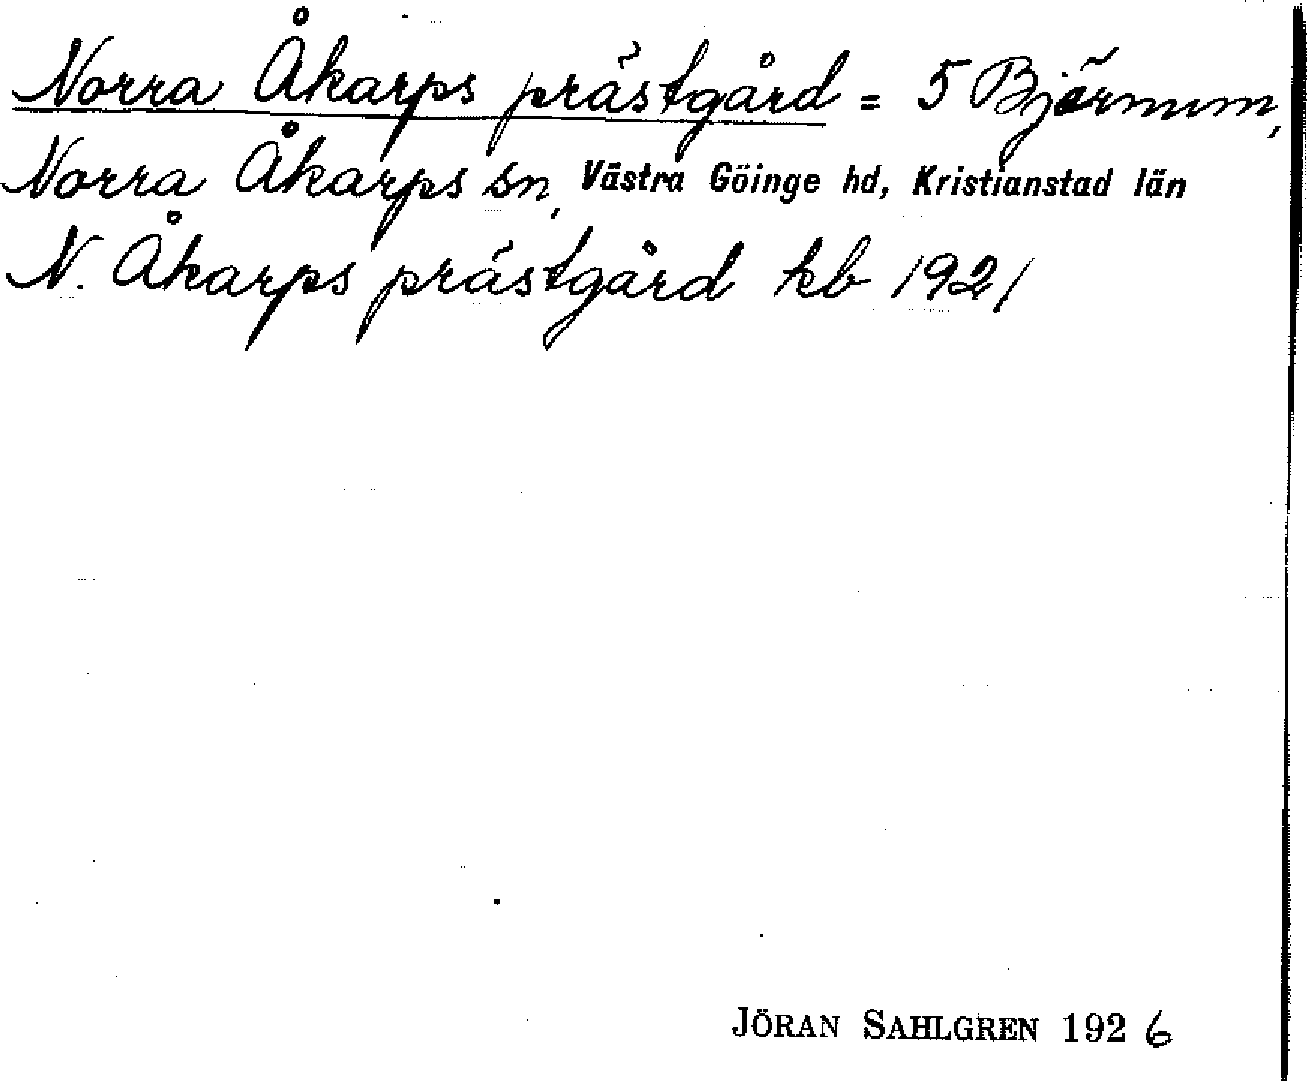 Norra Åkarps prästgård = 5 Bjärnum,
Norra Åkarps sn, Västra Göinge hd, Kristianstad län
N. Åkarps prästgård kb 1921
JÖRAN SAHLGREN 1926